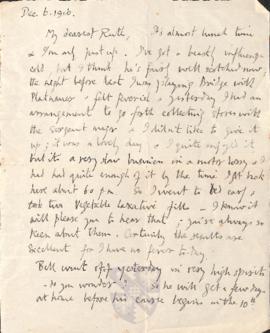 Dec. 6. 1916.
My dearest Ruth, It's almost lunch time
& I'm only just up. I've got a beastly influenza
cold but I think he's fairly well scotched now.
the night before last I was playing Bridge with
Platnauer & felt feverish & yesterday I had an
arrangement to go forth collecting stores with
the sergeant major & I didn't like to give it
up; it was a lovely day & I quite enjoyed it
but it's a very slow business in a motor lorry & I
had had quite enough of it by the time I got back
here about 6.0 p.m. So I went to bed early &
took two Vegetable laxative pills — I know it
will please you to hear that; you're always so
keen about them. Certainly the results are
excellent for I have no fever to-day.
Bell went off yesterday in very high spirits
do you wonder so he will get a few days
at home before his course begins on the 10th